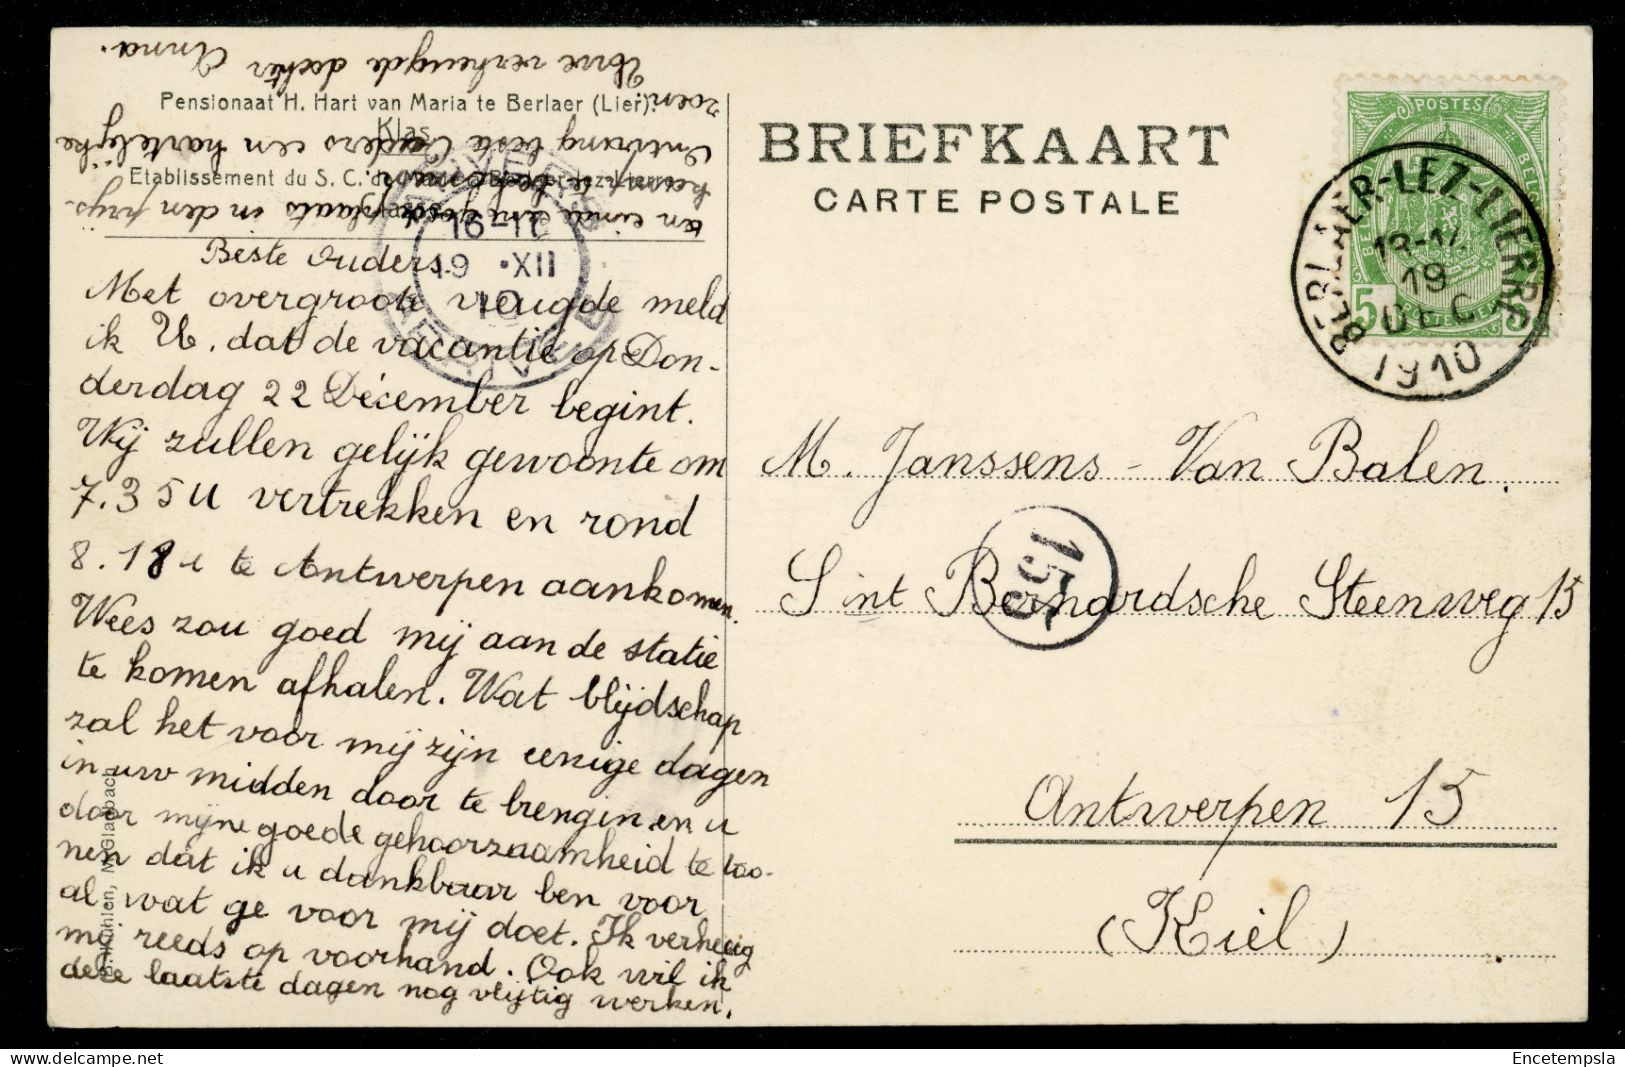 Pensionaat H. Hart van Maria te Berlaer (Lier).
Klas.
Etablissement du S. C. de
Beste Ouders.
Met overgroote vreugde meld
ik U. dat de vacantie op Don-
derdag 22 Décember begint.
Wij zullen gelijk gewoonte om
7.35 U vertrekken en rond
8.18 u te Antwerpen aankomen.
Wees zou goed mij aan de statie
te komen afhalen. Wat blijdschap
zal het voor mij zijn eenige dagen
in uw midden door te brengin en u
door mijne goede gehoorzaamheid te too-
nen dat ik u dankbaar ben voor
al wat ge voor mij doet. Ik verheug
mij reeds op voorhand. Ook wil ik
deze laatste dagen nog vlijtig werken,
een goede plaats in den prijs-
kamp te bekomen.
Ontvang beste Ouders een hartelijke
zoen.
Uwe verheugde dochter Anna.
B. Kühlen, M.Gladbach
BRIEFKAART
CARTE POSTALE
POSTES
BELGIË
5
BERLAER-LEZ-LIERRE
19
DEC
1910
ANVERS
19 • XII
10
ANTWERPEN
M. Janssens - Van Balen.
Sint Bernardsche Steenweg 15
155
Antwerpen 15
(Kiel)
Encetempsla